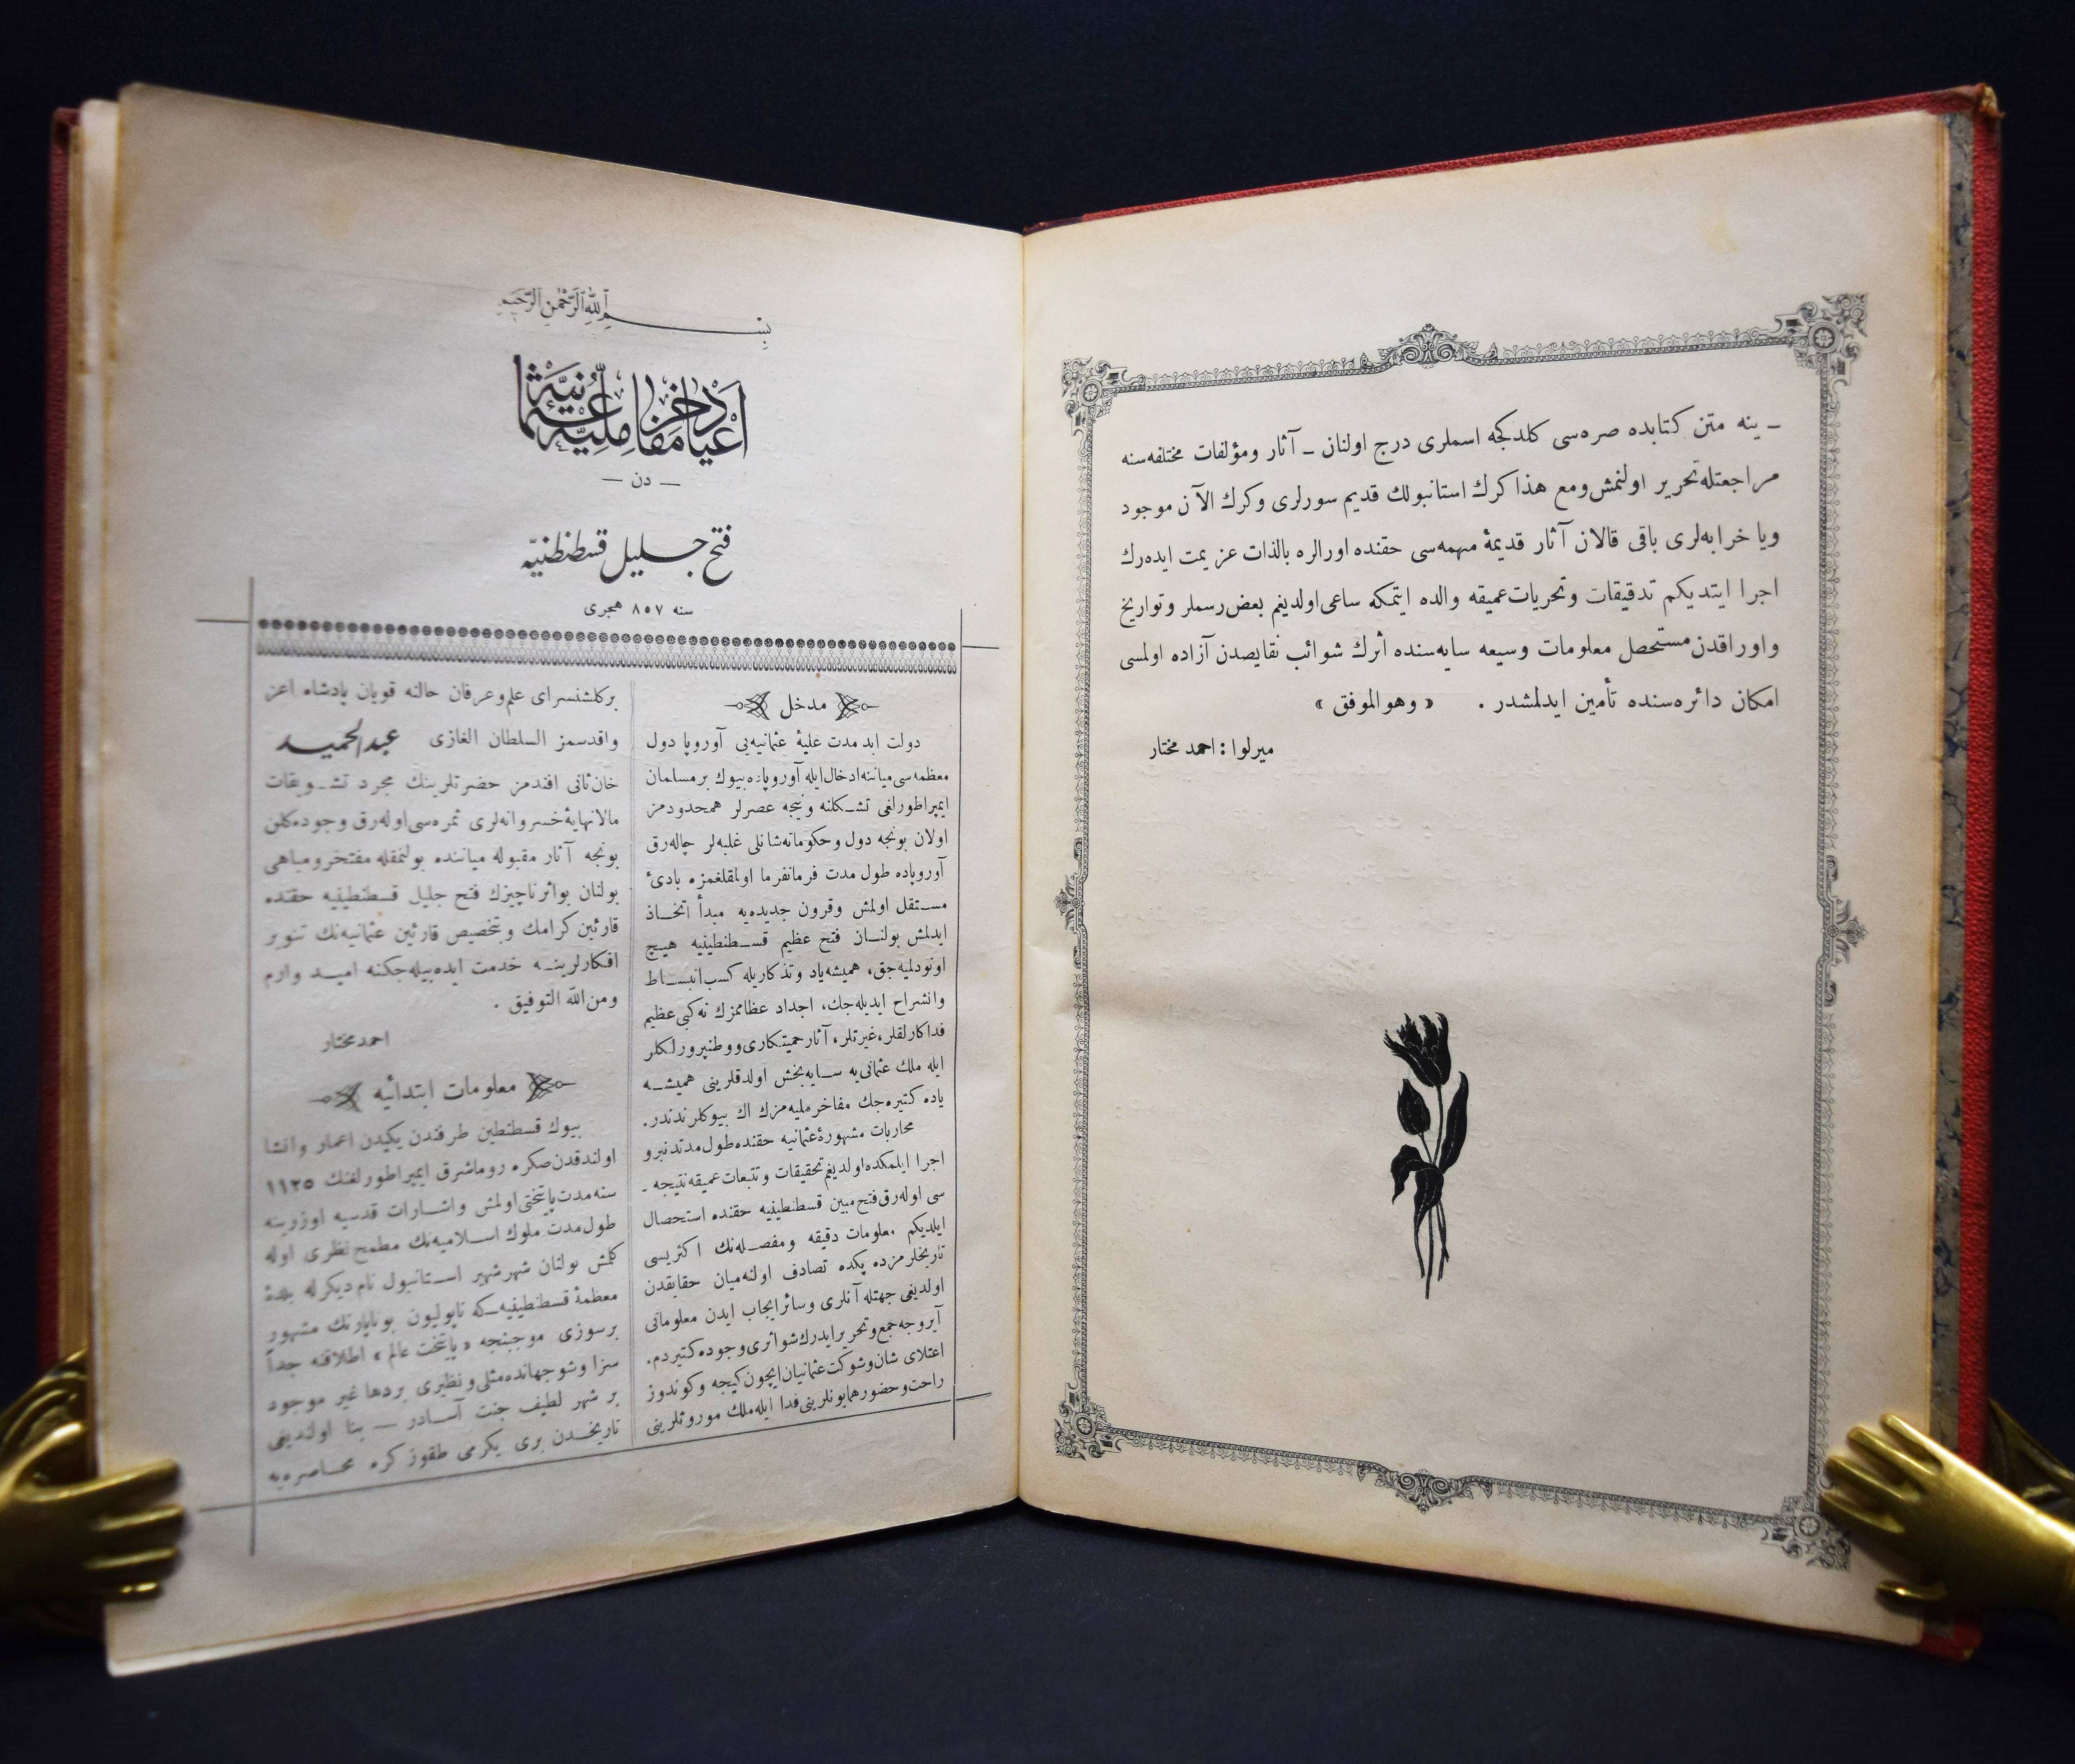 ـ ینه متن کتابده صره‌سی کلدکجه اسملری درج اولنان ـ آثار ومؤلفات مختلفه‌سنه
مراجعتله تحریر اولنمش ومع هذا کرك استانبولك قدیم سورلری وکرك الآن موجود
ویا خرابه‌لری باقی قالان آثار قدیمهٔ مهمه‌سی حقنده اورالره بالذات عزیمت ایده‌رك
اجرا ایتدیکم تدقیقات وتحریات عمیقه والده ایتمکه ساعی اولدیغم بعض رسملر وتواریخ
واوراقدن مستحصل معلومات وسیعه سایه‌سنده اثرك شوائب نقایصدن آزاده اولمسی
امکان دائره‌سنده تأمین ایدلمشدر . « وهو الموفق »
میرلوا : احمد مختار
بسم الله الرحمن الرحیم
اعیاد مفاخر ملیۀ عثمانیه
— دن —
فتح جلیل قسطنطنیّه
سنه ٨٥٧ هجری
مدخل
دولت ابد مدت علیهٔ عثمانیه‌یی آوروپا دول
معظمه‌سی میاننه ادخال ایله آوروپاده بیوك بر مسلمان
ایمپراطورلغی تشکلنه ونیجه عصرلر همحدودمز
اولان بونجه دول وحکوماته شانلی غلبه‌لر چاله‌رق
آوروپاده طول مدت فرمانفرما اولمقلغمزه بادیٔ
مستقل اولمش وقرون جدیده‌یه مبدأ اتخاذ
ایدلمش بولنان فتح عظیم قسطنطینیه هیچ
اونودلمیه‌جق، همیشه یاد وتذکاریله کسب انبساط
وانشراح ایدیله‌جك، اجداد عظاممزك نه کبی عظیم
فداکارلقلر، غیرتلر، آثار حمیتکاری ووطنپرورلکلر
ایله ملك عثمانی‌یه سایه‌بخش اولدقلرینی همیشه
یاده کتیره‌جك مفاخر ملیه‌مزك اك بیوکلرندندر.
محاربات مشهورهٔ عثمانیه حقنده طول مدتدنبرو
اجرا ایلمکده اولدیغم تحقیقات وتتبعات عمیقه نتیجه -
سی اوله‌رق فتح مبین قسطنطینیه حقنده استحصال
ایلدیکم معلومات دقیقه ومفصله‌نك اکثریسی
تاریخلرمزده پکده تصادف اولنه‌میان حقایقدن
اولدیغی جهتله آنلری وسائر ایجاب ایدن معلوماتی
آیروجه جمع وتحریر ایدرك شو اثری وجوده کتیردم.
اعتلای شان وشوکت عثمانیان ایچون کیجه وکوندوز
راحت وحضور همایونلرینی فدا ایله ملك موروثلرینی
بر کلشنسرای علم وعرفان حالنه قویان پادشاه اعز
واقدسمز السلطان الغازی عبدالحمید
خان ثانی افندمز حضرتلرینك مجرد تشویقات
مالانهایهٔ خسروانه‌لری ثمره‌سی اوله‌رق وجوده کلن
بونجه آثار مقبوله میاننده بولنمقله مفتخر ومباهی
بولنان بو اثر ناچیزك فتح جلیل قسطنطینیه حقنده
قارئین کرامك وبتخصیص قارئین عثمانیه‌نك تنویر
افکارلرینه خدمت ایده بیله‌جکنه امید وارم
ومن الله التوفیق .
احمد مختار
معلومات ابتدائیه
بیوك قسطنطین طرفندن یکیدن اعمار وانشا
اولندقدن صکره روما شرق ایمپراطورلغنك ١١٢٥
سنه مدت پایتختی اولمش واشارات قدسیه اوزرینه
طول مدت ملوك اسلامیه‌نك مطمح نظری اوله
کلمش بولنان شهر شهیر استانبول نام دیکرله بلدهٔ
معظمهٔ قسطنطینیه‌که ناپولیون بوناپارتك مشهور
بر سوزی موجبنجه « پایتخت عالم » اطلاقنه جداً
سزا وشو جهانده مثلی ونظیری بردها غیر موجود
بر شهر لطیف جنت آسادر — بنا اولندیغی
تاریخدن بری یکرمی طقوز کره محاصره‌یه